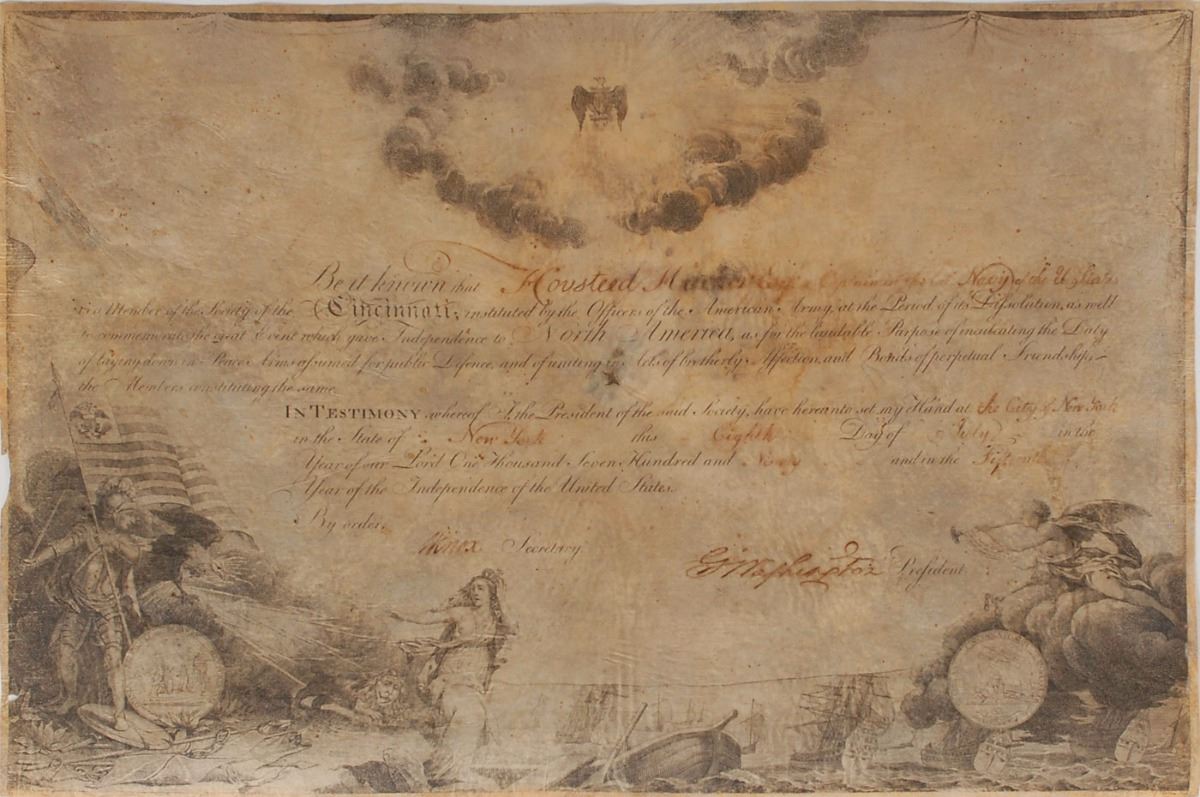 Be it known that Hoysteed Hacker Esqr. a Captain in the late Navy of the U. States
is a Member of the Society of the Cincinnati; instituted by the Officers of the American Army, at the Period of its Dissolution, as well
to commemorate the great Event which gave Independence to North America, as for the laudable Purpose of inculcating the Duty
of laying down in Peace Arms assumed for public Defence, and of uniting in Acts of brotherly Affection, and Bonds of perpetual Friendship,
the Members constituting the same.
IN TESTIMONY whereof I, the President of the said Society, have hereunto set my Hand at the City of New York
in the State of New York this Eighth Day of July in the
Year of our Lord One Thousand Seven Hundred and Ninety and in the Fifteenth
Year of the Independence of the United States.
By order,
Knox Secretary.
G. Washington President.